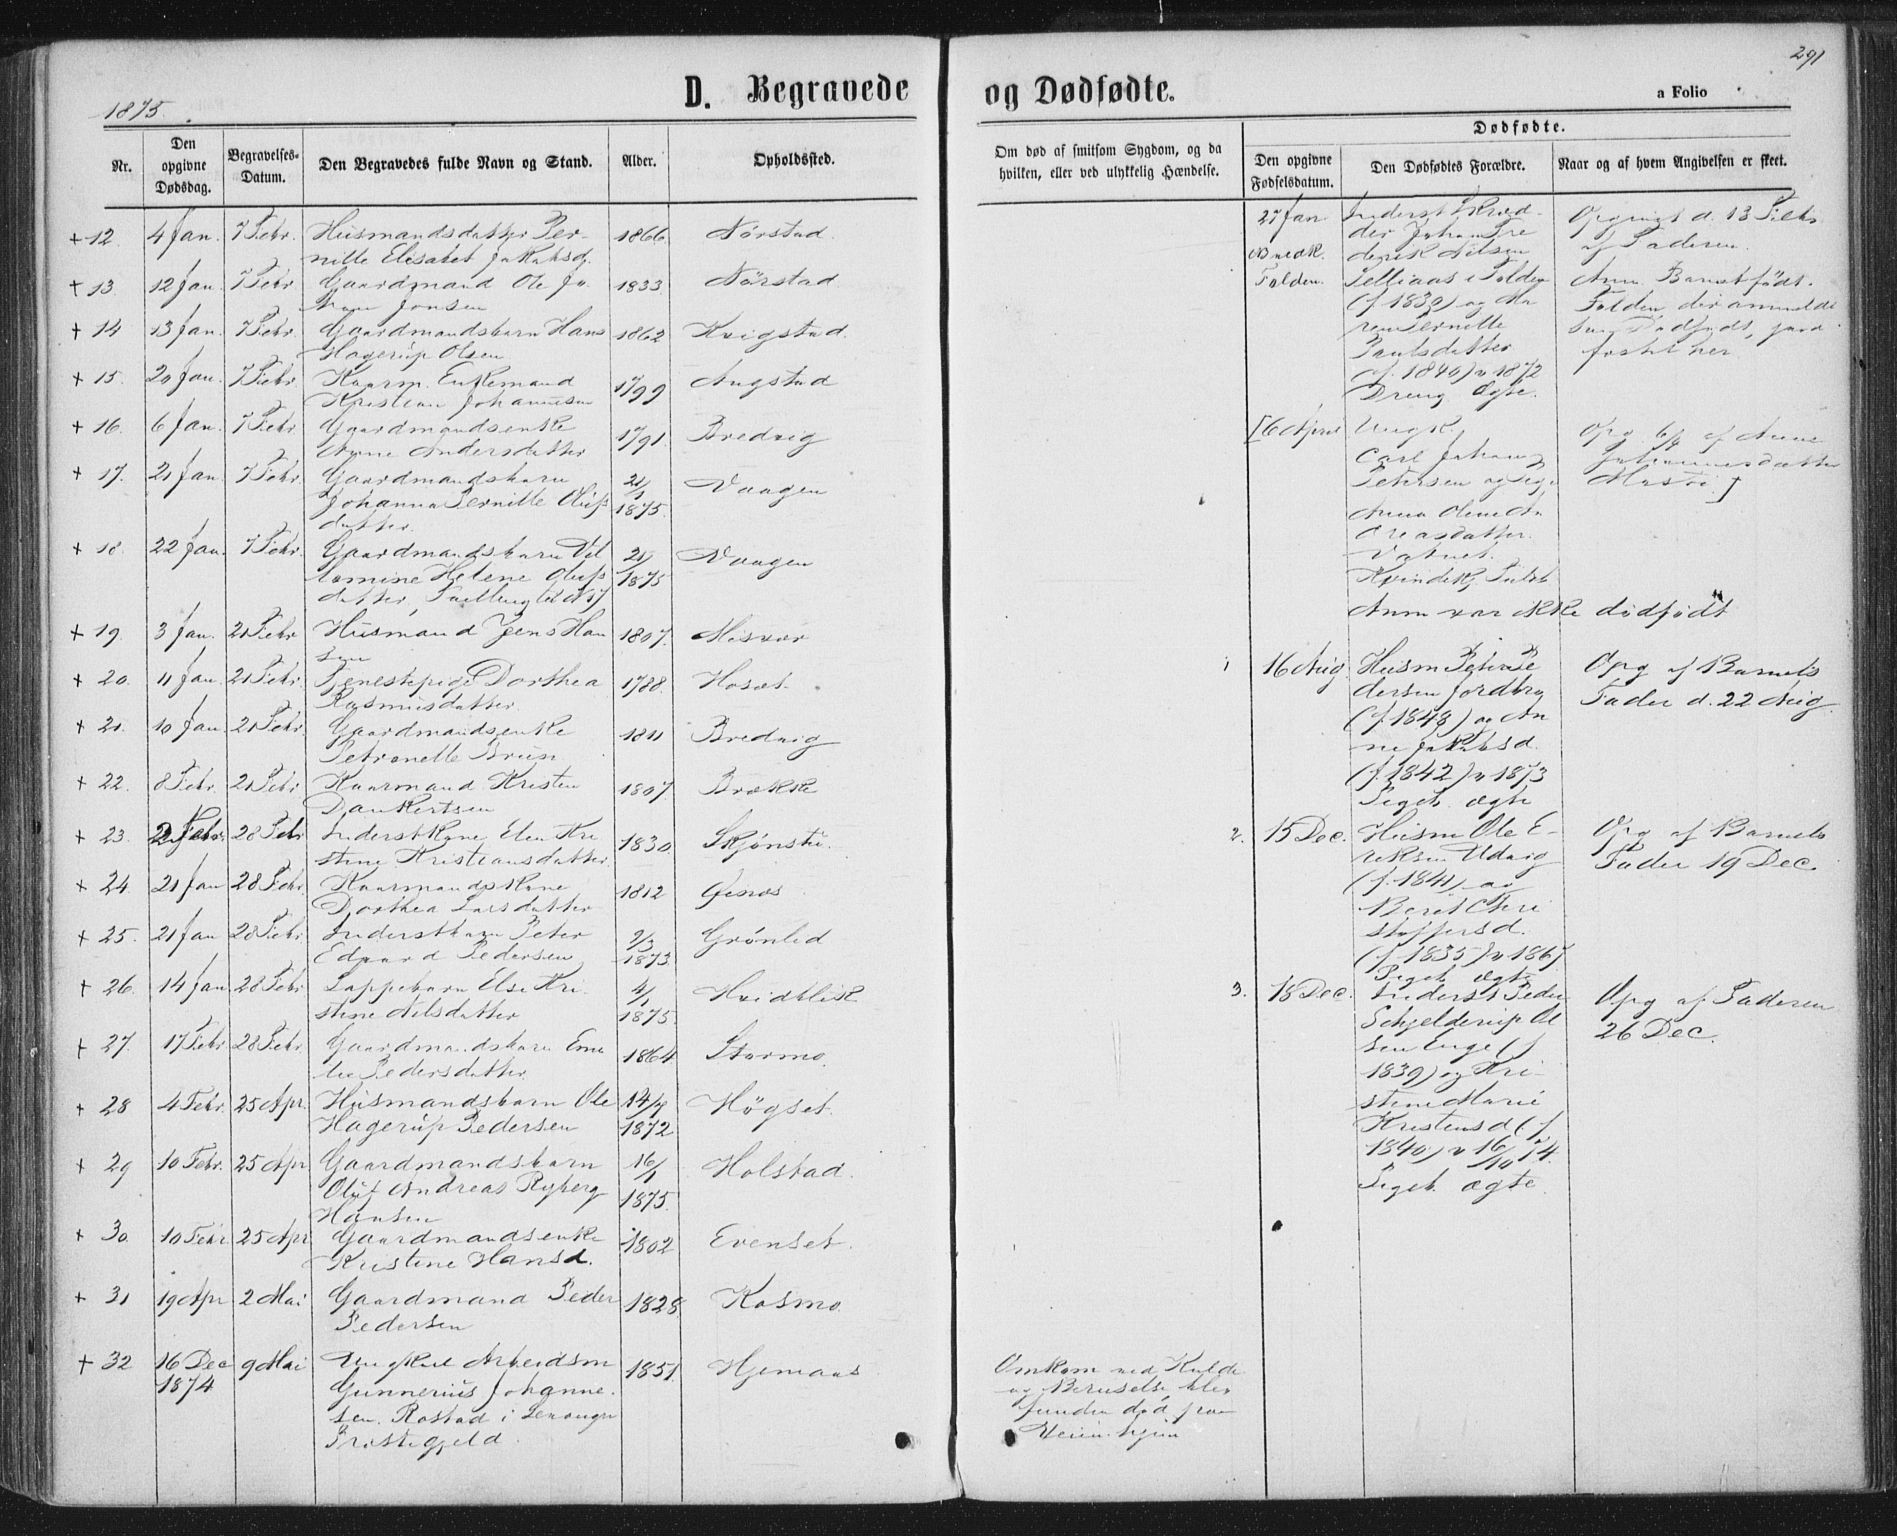 291
1875.
D. Begravede og Dødfødte.
a Folio
Nr.
Den opgivne Dødsdag.
Begravelses-Datum.
Den Begravedes fulde Navn og Stand.
Alder.
Opholdssted.
Om død af smitsom Sygdom, og da hvilken, eller ved ulykkelig Hændelse.
Dødfødte.
Den opgivne Fødselsdatum.
Den Dødfødtes Forældre.
Naar og af hvem Angivelsen er skeet.
+ 12. 4 Jan. 7 Febr. Husmandsdatter Per- 1866 Nørstad.
nille Elisabet Jakobsd.
+ 13. 12 Jan. 7 Febr Gaardmand Ole Jo 1833 Nørstad
han Jonsen
+ 14 13 Jan. 7 Febr. Gaardmandsbarn Hans 1862 Kvigstad.
Hagerup Olsen
+ 15. 20 Jan. 7 Febr. Kaarm. Enkemand 1799 Augstad
Kristian Johannesen
+ 16. 6 Jan. 7 Febr Gaardmandsenke 1791. Bredvig
Anne Andersdatter
+ 17. 21 Jan. 7 Febr. Gaardmandsbarn 21/1 1875. Vaagen
Johanna Pernille Olufs
datter.
+ 18. 22 Jan. 7 Febr. Gaardmandsbarn 21/1 1875 Vaagen
Helene Olufs
datter, Tvilling
+ 19. 3 Jan. 21 Febr Husmand Jens Han 1807. Misvær
sen
+ 20. 11 Jan. 21 Febr. Tjenestepige Dorthea 1788. Hoset.
Rasmusdatter
+ 21. 10 Jan. 21 Febr. Gaardmandsenke 1811 Bredvig
Petronelle Brun
+ 22. 8 Febr. 21 Febr Kaarmand Kristen 1807. Brække
Dankertsen
+ 23. 2 Febr. 28 Febr Inderstkone Elen Kri 1830. Skjønstu.
stine Kristiansdatter
+ 24. 21 Jan 28 Febr. Kaarmandskone 1812
Dorthea Larsdatter
+ 25. 21 Jan 28 Febr. Inderstbarn Peter 2/3 1873. Grønlid
Edvard Pedersen
+ 26. 14 Jan 28 Febr Lappebarn Else Kri 4/1 1875. Hvidblik
stine Nilsdatter
+ 27. 17 Febr 28 Febr. Gaardmandsbarn 1864 Stormo.
Pedersdatter
+ 28 4 Febr. 25 Apr. Husmandsbarn Ole 1872 Høgset.
Hagerup Pedersen
+ 29 10 Febr. 25 Apr. Gaardmandsbarn 16/1 1875. Holstad.
Oluf Andreas Ryberg
Hansen
+ 30. 10 Febr 25 Apr Gaardmandsenke 1802 Evenset.
Kristine Hansd.
+ 31 19 Apr 2 Mai Gaardmand Peder 1828. Kosmo
Pedersen
+ 32 16 Dec 1874 9 Mai Ungkarl Arbeidsm 1851. Hjemaas
Gunnerius Johanne-
sen. Rostad i
Præstegjeld.
Omkom ved Kulde
og Beruselse, blev
funden død paa
Veien hjem
27 Jan Inderst Skræd-
der Johan Fre
derik Nilsen
Folden. i Folden
(f. 1830) og Ma
ren Pernille
Paulsdatter
(f. 1840) v 1872
Dreng Ægte.
Opgivet d. 13 Febr
af Faderen.
Anm. Barnet født i
Folden, der anmeldt
som Dødfødt, jord-
fæstet her
[6 April Ungk.
Carl Johan
Petersen og Pige
Anna Oline An
dreasdatter.
Vatnet.
Opg 6/ af Anne
Johannesdatter
Mosvi.]
Anm var ikke dødfødt
1 16 Aug. Husm Peter Pe
dersen Jordbro
(f. 1848) og An
ne Jakobsd.
(f. 1842) v 1873
Pigeb. ægte
Opg af Barnets
Fader d. 22 Aug.
2. 15 Dec. Husm Ole E-
riksen Udvig
(f. 1841) og
Beret Chri
stoffersd.
(f. 1835) v 1867
Pigeb. ægte
Opg af Barnets
Fader 19 Dec.
3. 18 Dec. Inderst Peder
Schjelderup Ol
sen Enge (f
1839) og Kri-
stine Marie
Kristensd (f
1840) v 16/10 74.
Pigeb. ægte.
Opg af Faderen
26 Dec.